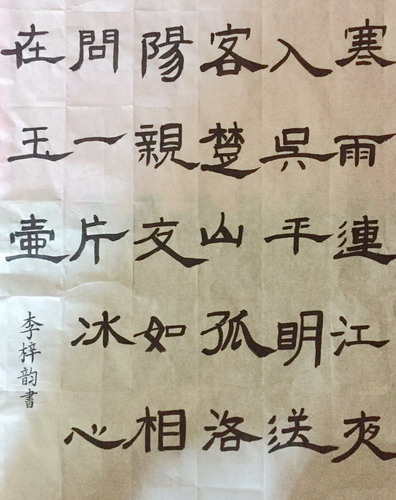 寒雨連江夜
入吳平明送
客楚山孤洛
陽親友如相
問一片冰心
在玉壺
李梓韵書